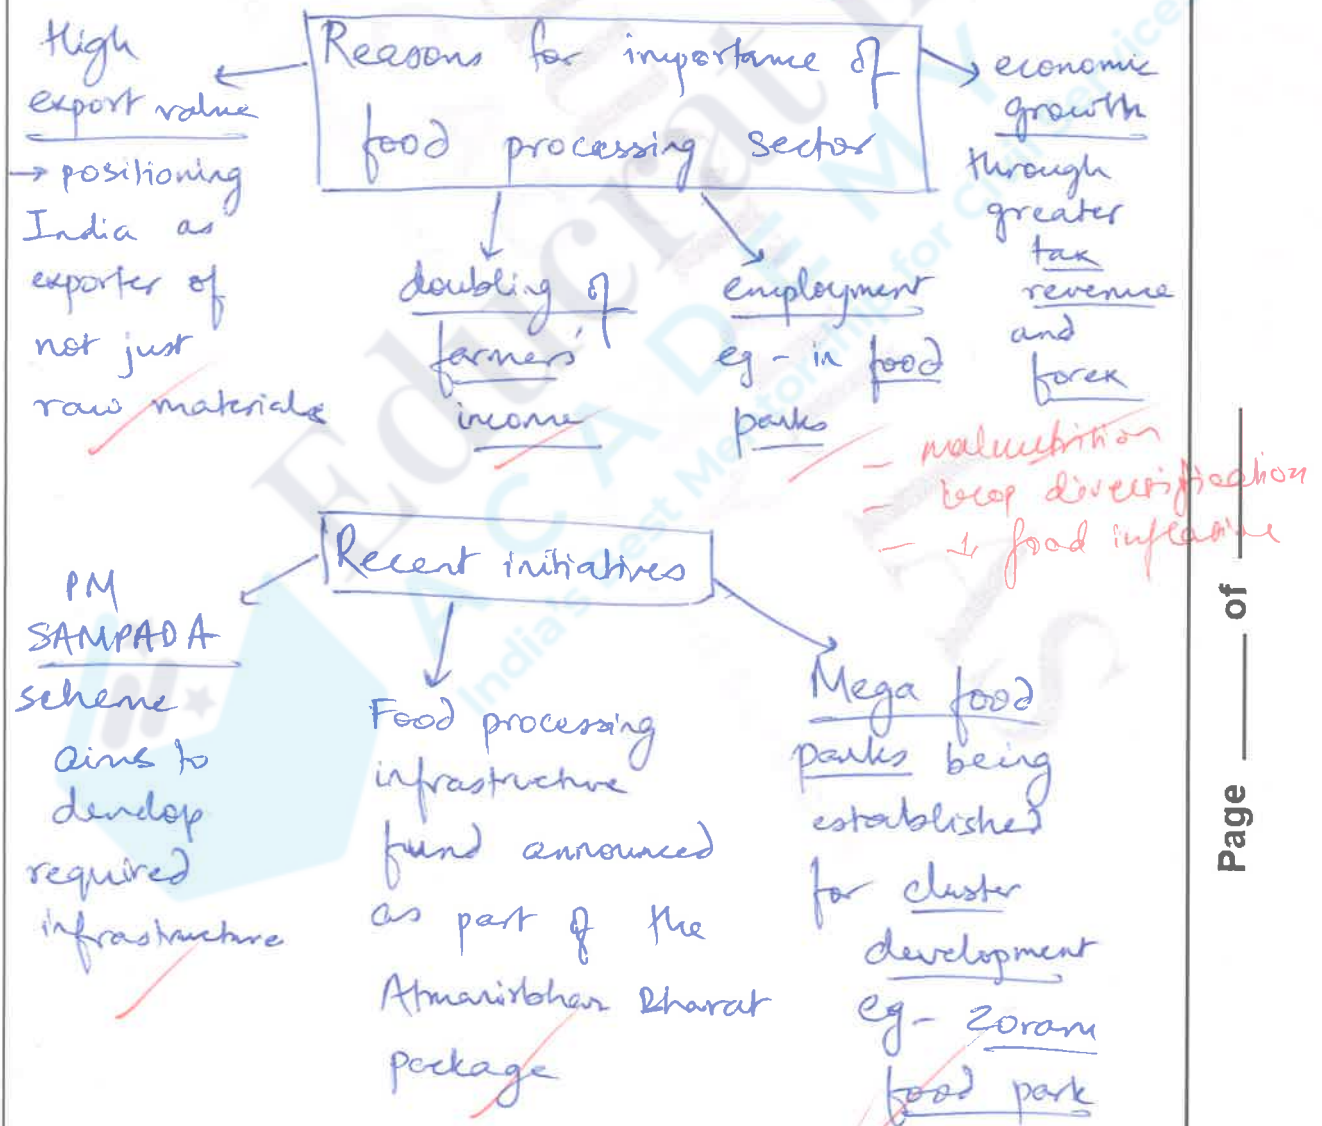 Reasons for importance of
food processing sector
High
export value
→ positioning
India as
exporter of
not just
raw materials
doubling of
farmers'
income
employment
eg - in food
parks
economic
growth
through
greater
tax
revenue
and
forex
- malnutrition
- crop diversification
- ↓ food inflation
Recent initiatives
PM
SAMPADA
scheme
aims to
develop
required
infrastructure
Food processing
infrastructure
fund announced
as part of the
Atmanirbhar Bharat
package
Mega food
parks being
established
for cluster
development
eg- Zoram
food park
Page ___ of ___
Educrat
ACADEMY
India's Best Mentorship for Civil Services